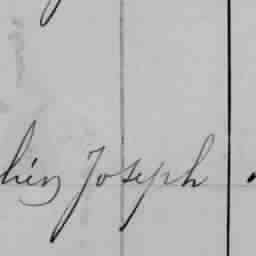 hin Joseph